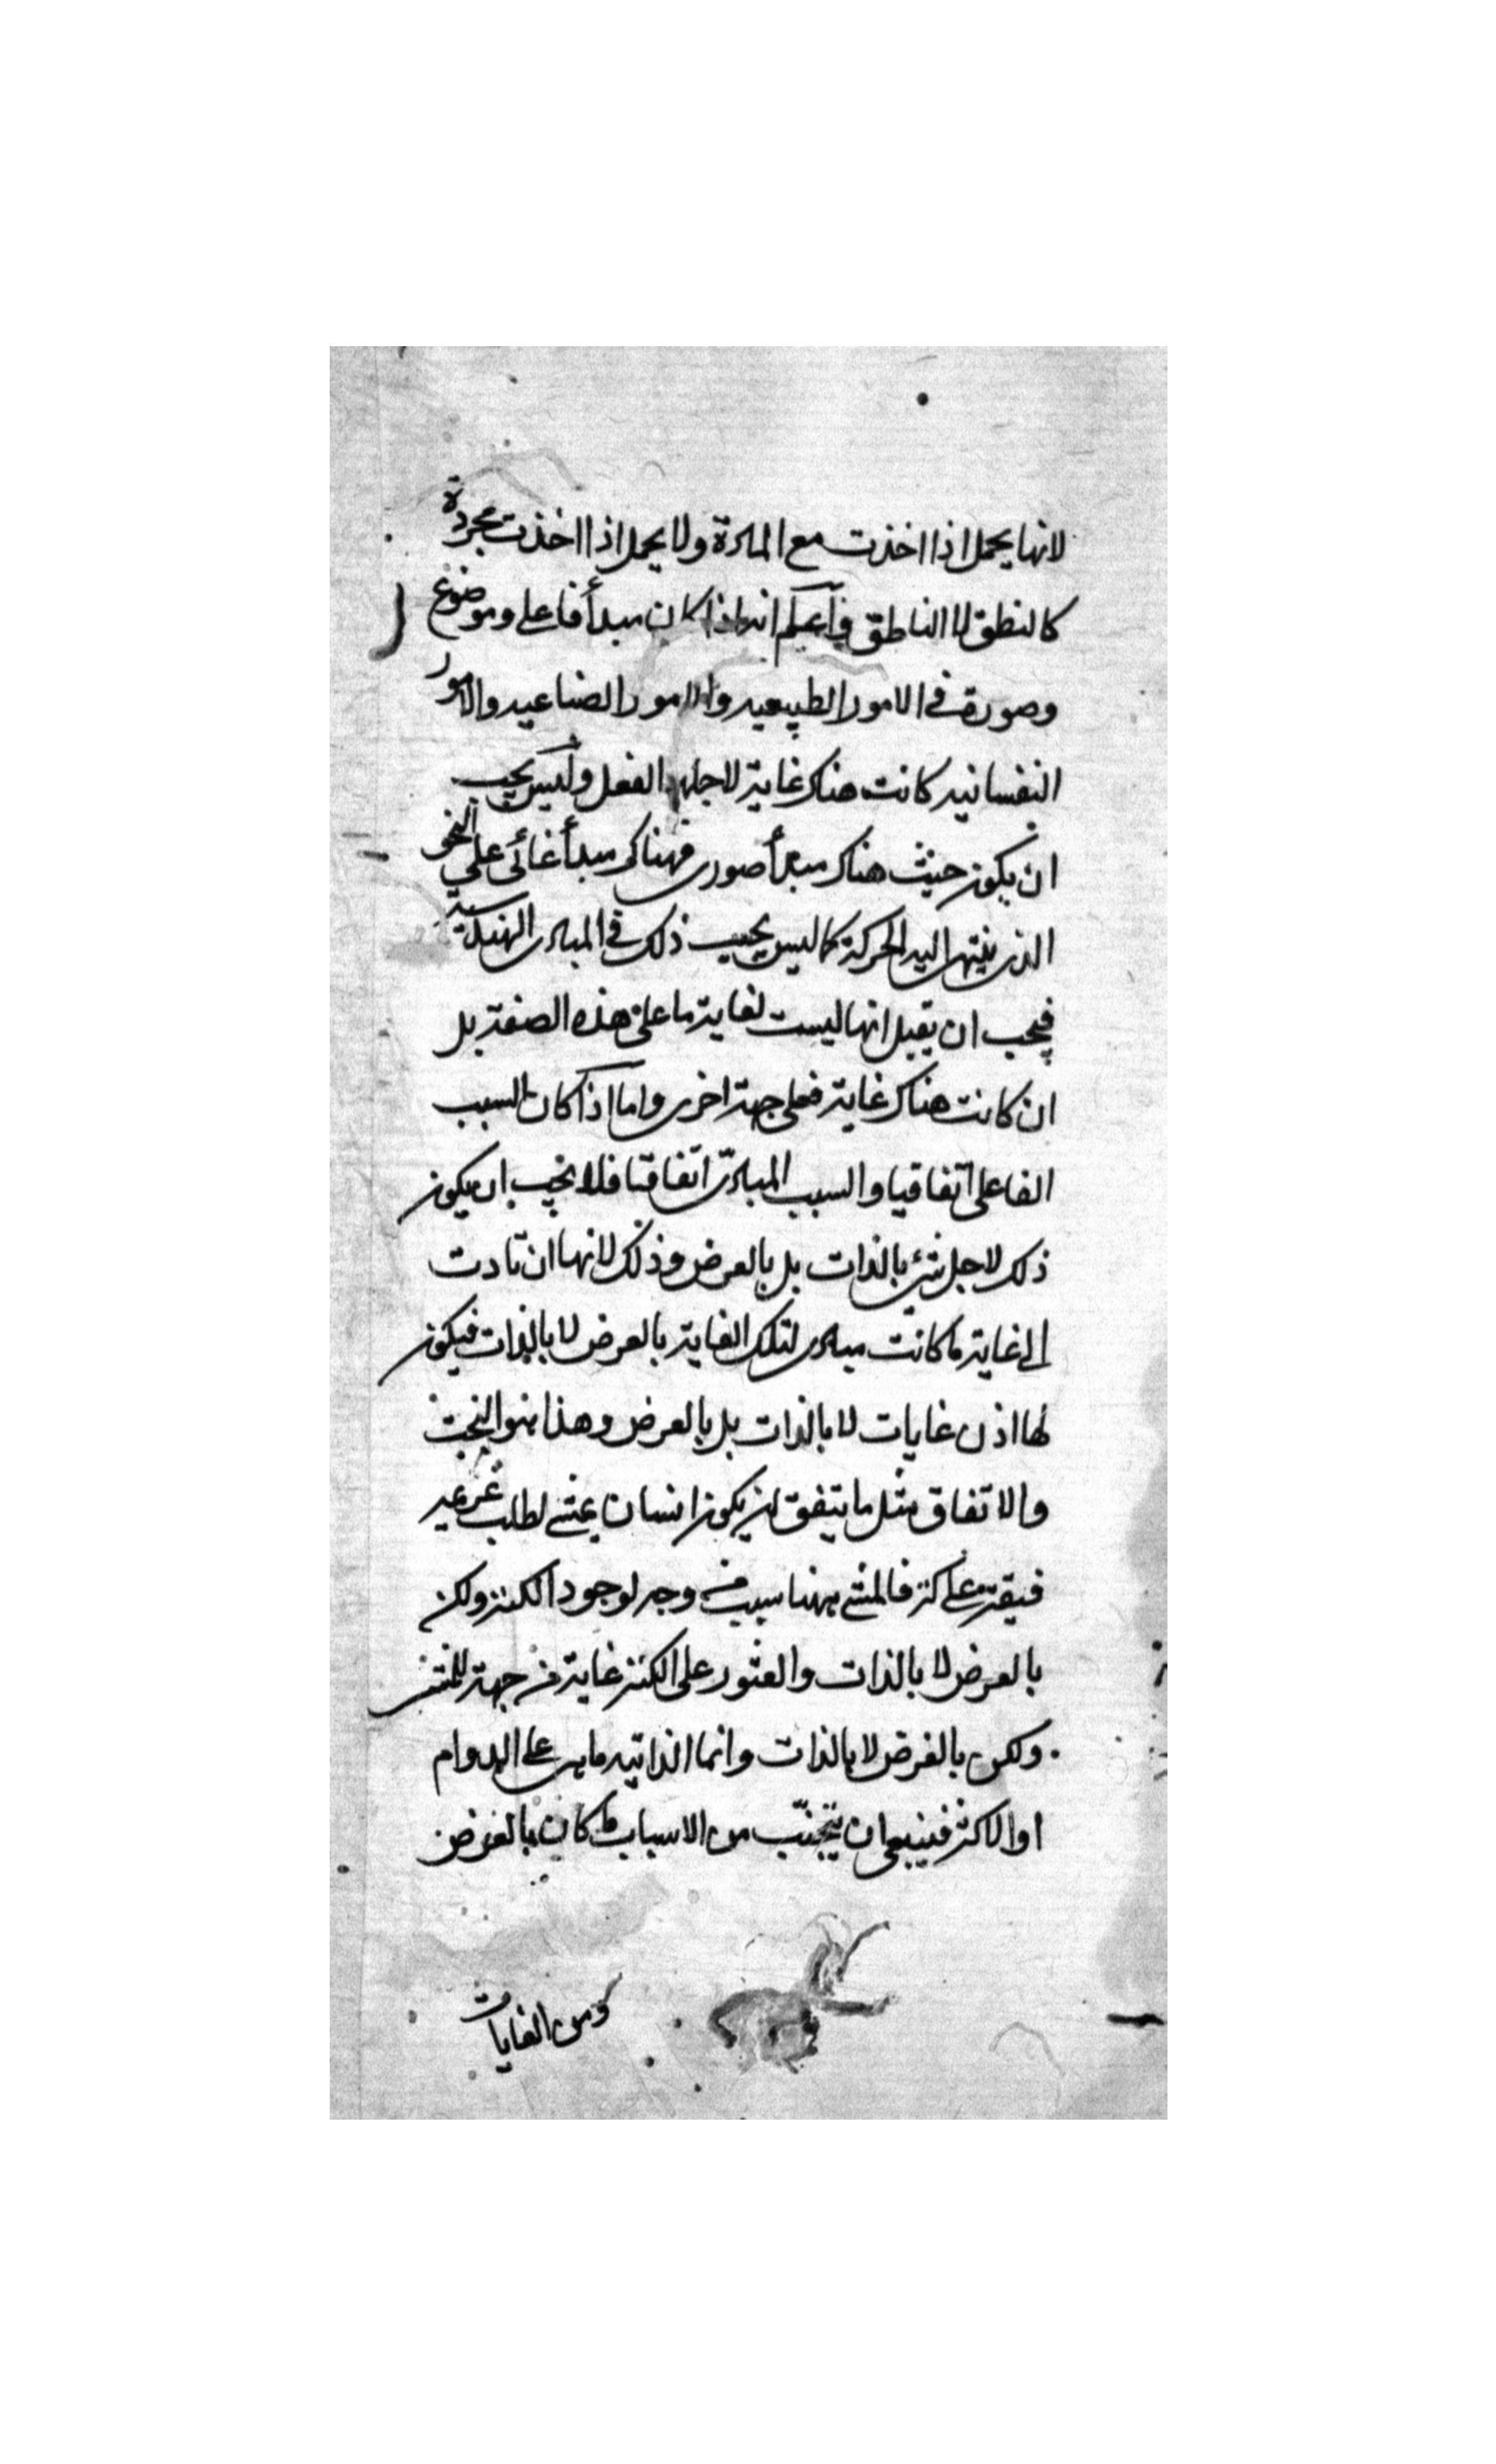 لانها يحمل اذا اخذت مع المادة ولا يحمل اذا اخذت مجردة
كالنطق لا الناطق واعلم انه اذا كان مبدأ فاعلى وموضوع
وصورة فى الامور الطبيعيه والامور الصناعيه والامور
النفسانيه كانت هناك غاية لاجلها الفعل وليس يجب
ان يكون حيث هناك مبدأ صورى فهناك مبدأ غائى على النحو
الذى ينتهى اليه الحركة كما ليس يجب ذلك فى المبادى الهندسية
فيجب ان يقبل انها ليست لغاية ما على هذه الصفة بل
ان كانت هناك غاية فعلى جهة اخرى واما اذا كان السبب
الفاعلى اتفاقيا والسبب المبادى اتفاقيا فلا يجب ان يكون
ذلك لاجل شئ بالذات بل بالعرض وذلك لانها ان تادت
الى غاية ما كانت مبادى لتلك الغاية بالعرض لا بالذات فيكون
لها اذن غايات لا بالذات بل بالعرض وهذا هو البخت
والاتفاق مثل ما يتفق ان يكون انسان يمشى لطلب غريمه
على كنز فالمشى ههنا سبب من وجه لوجود الكنز ولكن
بالعرض لا بالذات والعثور على الكنز غاية من جهة للمشى
ولكن بالعرض لا بالذات وانما الذاتيه ما هى على الدوام
او الاكثر فينبغى ان يتجنب من الاسباب ما كان بالعرض
ومن الغايات